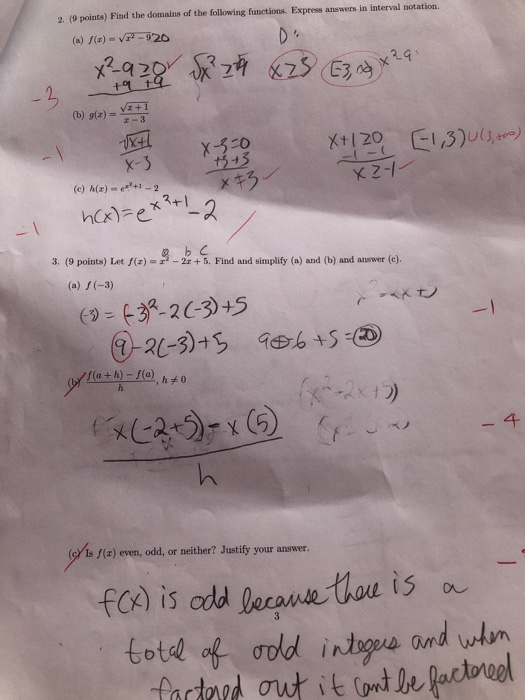 2. (9 points) Find the domains of the following functions. Express answers in interval notation.
(a) f(x) = √x² − 9 ≥0 D:
x²-9≥0 √x² ≥ √9 x≥3 [-3, ∞) x²9
+9 +9
-3
(b) g(x) = √x+1 / x−3
√x+1 / x-3 x-3=0 x+1≥0 [-1,3)∪(3,+∞)
+3+3 -1 -1
-1 x≠3 x≥-1
(c) h(x) = eˣ²⁺¹ − 2
h(x)=eˣ²⁺¹-2
-1
a b c
3. (9 points) Let f(x) = x² − 2x + 5. Find and simplify (a) and (b) and answer (c).
(a) f(−3)
(-3) = (-3)²-2(-3)+5 -1
9-2(-3)+5 9+6+5=20
(b) f(a + h) − f(a) / h , h ≠ 0
(x²-2x+5)
x(-2+5)-x(5) -4
h
(c) Is f(x) even, odd, or neither? Justify your answer.
f(x) is odd because there is a
3
total of odd integers and when
factored out it cant be factored